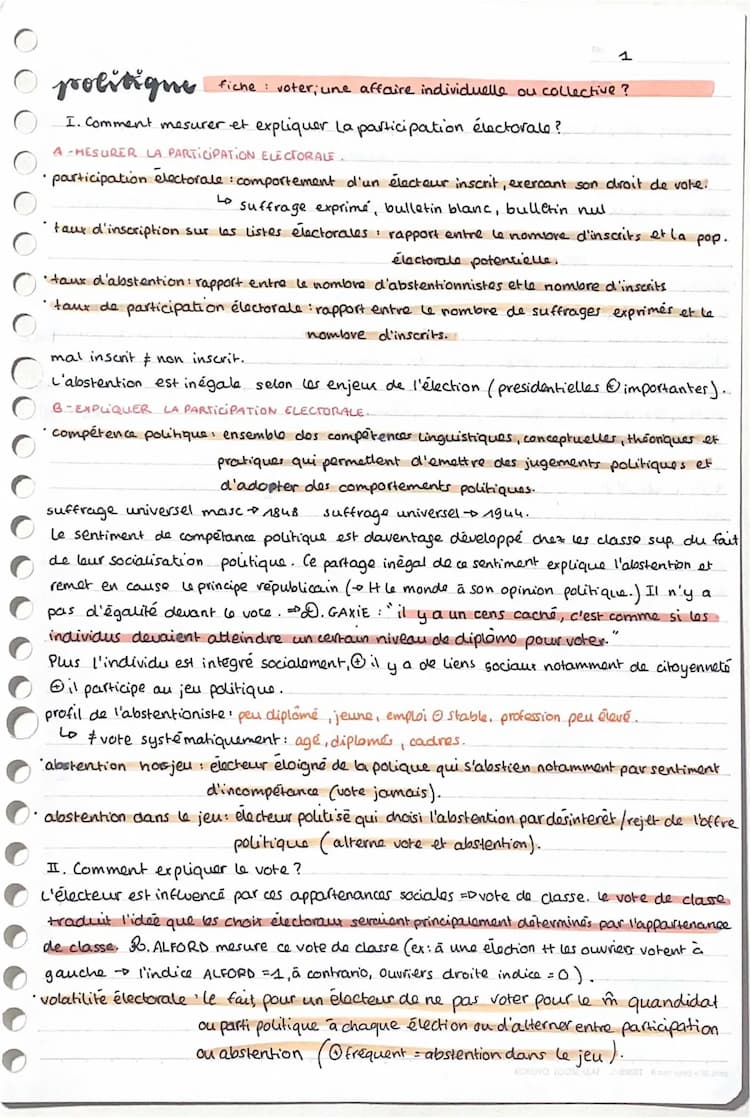 1
politique fiche : voter, une affaire individuelle ou collective ?
I. Comment mesurer et expliquer la participation électorale ?
A - MESURER LA PARTICIPATION ELECTORALE.
• participation électorale : comportement d'un électeur inscrit, exercant son droit de vote.
↳ suffrage exprimé, bulletin blanc, bulletin nul
• taux d'inscription sur les listes électorales : rapport entre le nombre d'inscrits et la pop.
électorale potentielle.
• taux d'abstention : rapport entre le nombre d'abstentionnistes et le nombre d'inscrits
• taux de participation électorale : rapport entre le nombre de suffrages exprimés et le
nombre d'inscrits.
mal inscrit ≠ non inscrit.
L'abstention est inégale selon les enjeux de l'élection (presidentielles ⊕ importantes).
B - EXPLIQUER LA PARTICIPATION ELECTORALE.
• compétence politique : ensemble des compétences linguistiques, conceptuelles, théoriques et
pratiques qui permettent d'émettre des jugements politiques et
d'adopter des comportements politiques.
suffrage universel masc → 1848 suffrage universel → 1944.
Le sentiment de compétance politique est daventage développé chez les classe sup. du fait
de leur socialisation politique. Ce partage inégal de ce sentiment explique l'abstention et
remet en cause le principe républicain (→ tt le monde à son opinion politique.) Il n'y a
pas d'égalité devant le vote. ⇒ D. GAXIE : "il y a un cens caché, c'est comme si les
individus devaient atteindre un certain niveau de diplôme pour voter."
Plus l'individu est integré socialement, ⊕ il y a de liens sociaux notamment de citoyenneté
⊕ il participe au jeu politique.
profil de l'abstentioniste : peu diplômé, jeune, emploi ⊖ stable, profession peu élevé.
↳ ≠ vote systématiquement : agé, diplomés, cadres.
• abstention hors jeu : électeur éloigné de la polique qui s'abstien notamment par sentiment
d'incompétance (vote jamais).
• abstention dans le jeu : électeur politisé qui choisi l'abstention par désinterêt / rejet de l'offre
politique (alterne vote et abstention).
II. Comment expliquer le vote ?
L'électeur est influencé par ces appartenances sociales ⇒ vote de classe. le vote de classe
traduit l'idée que les choix électoraux seraient principalement déterminés par l'appartenance
de classe. R. ALFORD mesure ce vote de classe (ex : à une élection tt les ouvriers votent à
gauche → l'indice ALFORD = 1, à contrario, ouvriers droite indice = 0).
• volatilité électorale : le fait, pour un électeur de ne pas voter pour le m̂ quandidat
ou parti politique à chaque élection ou d'alterner entre participation
ou abstention (⊕ fréquent = abstention dans le jeu).